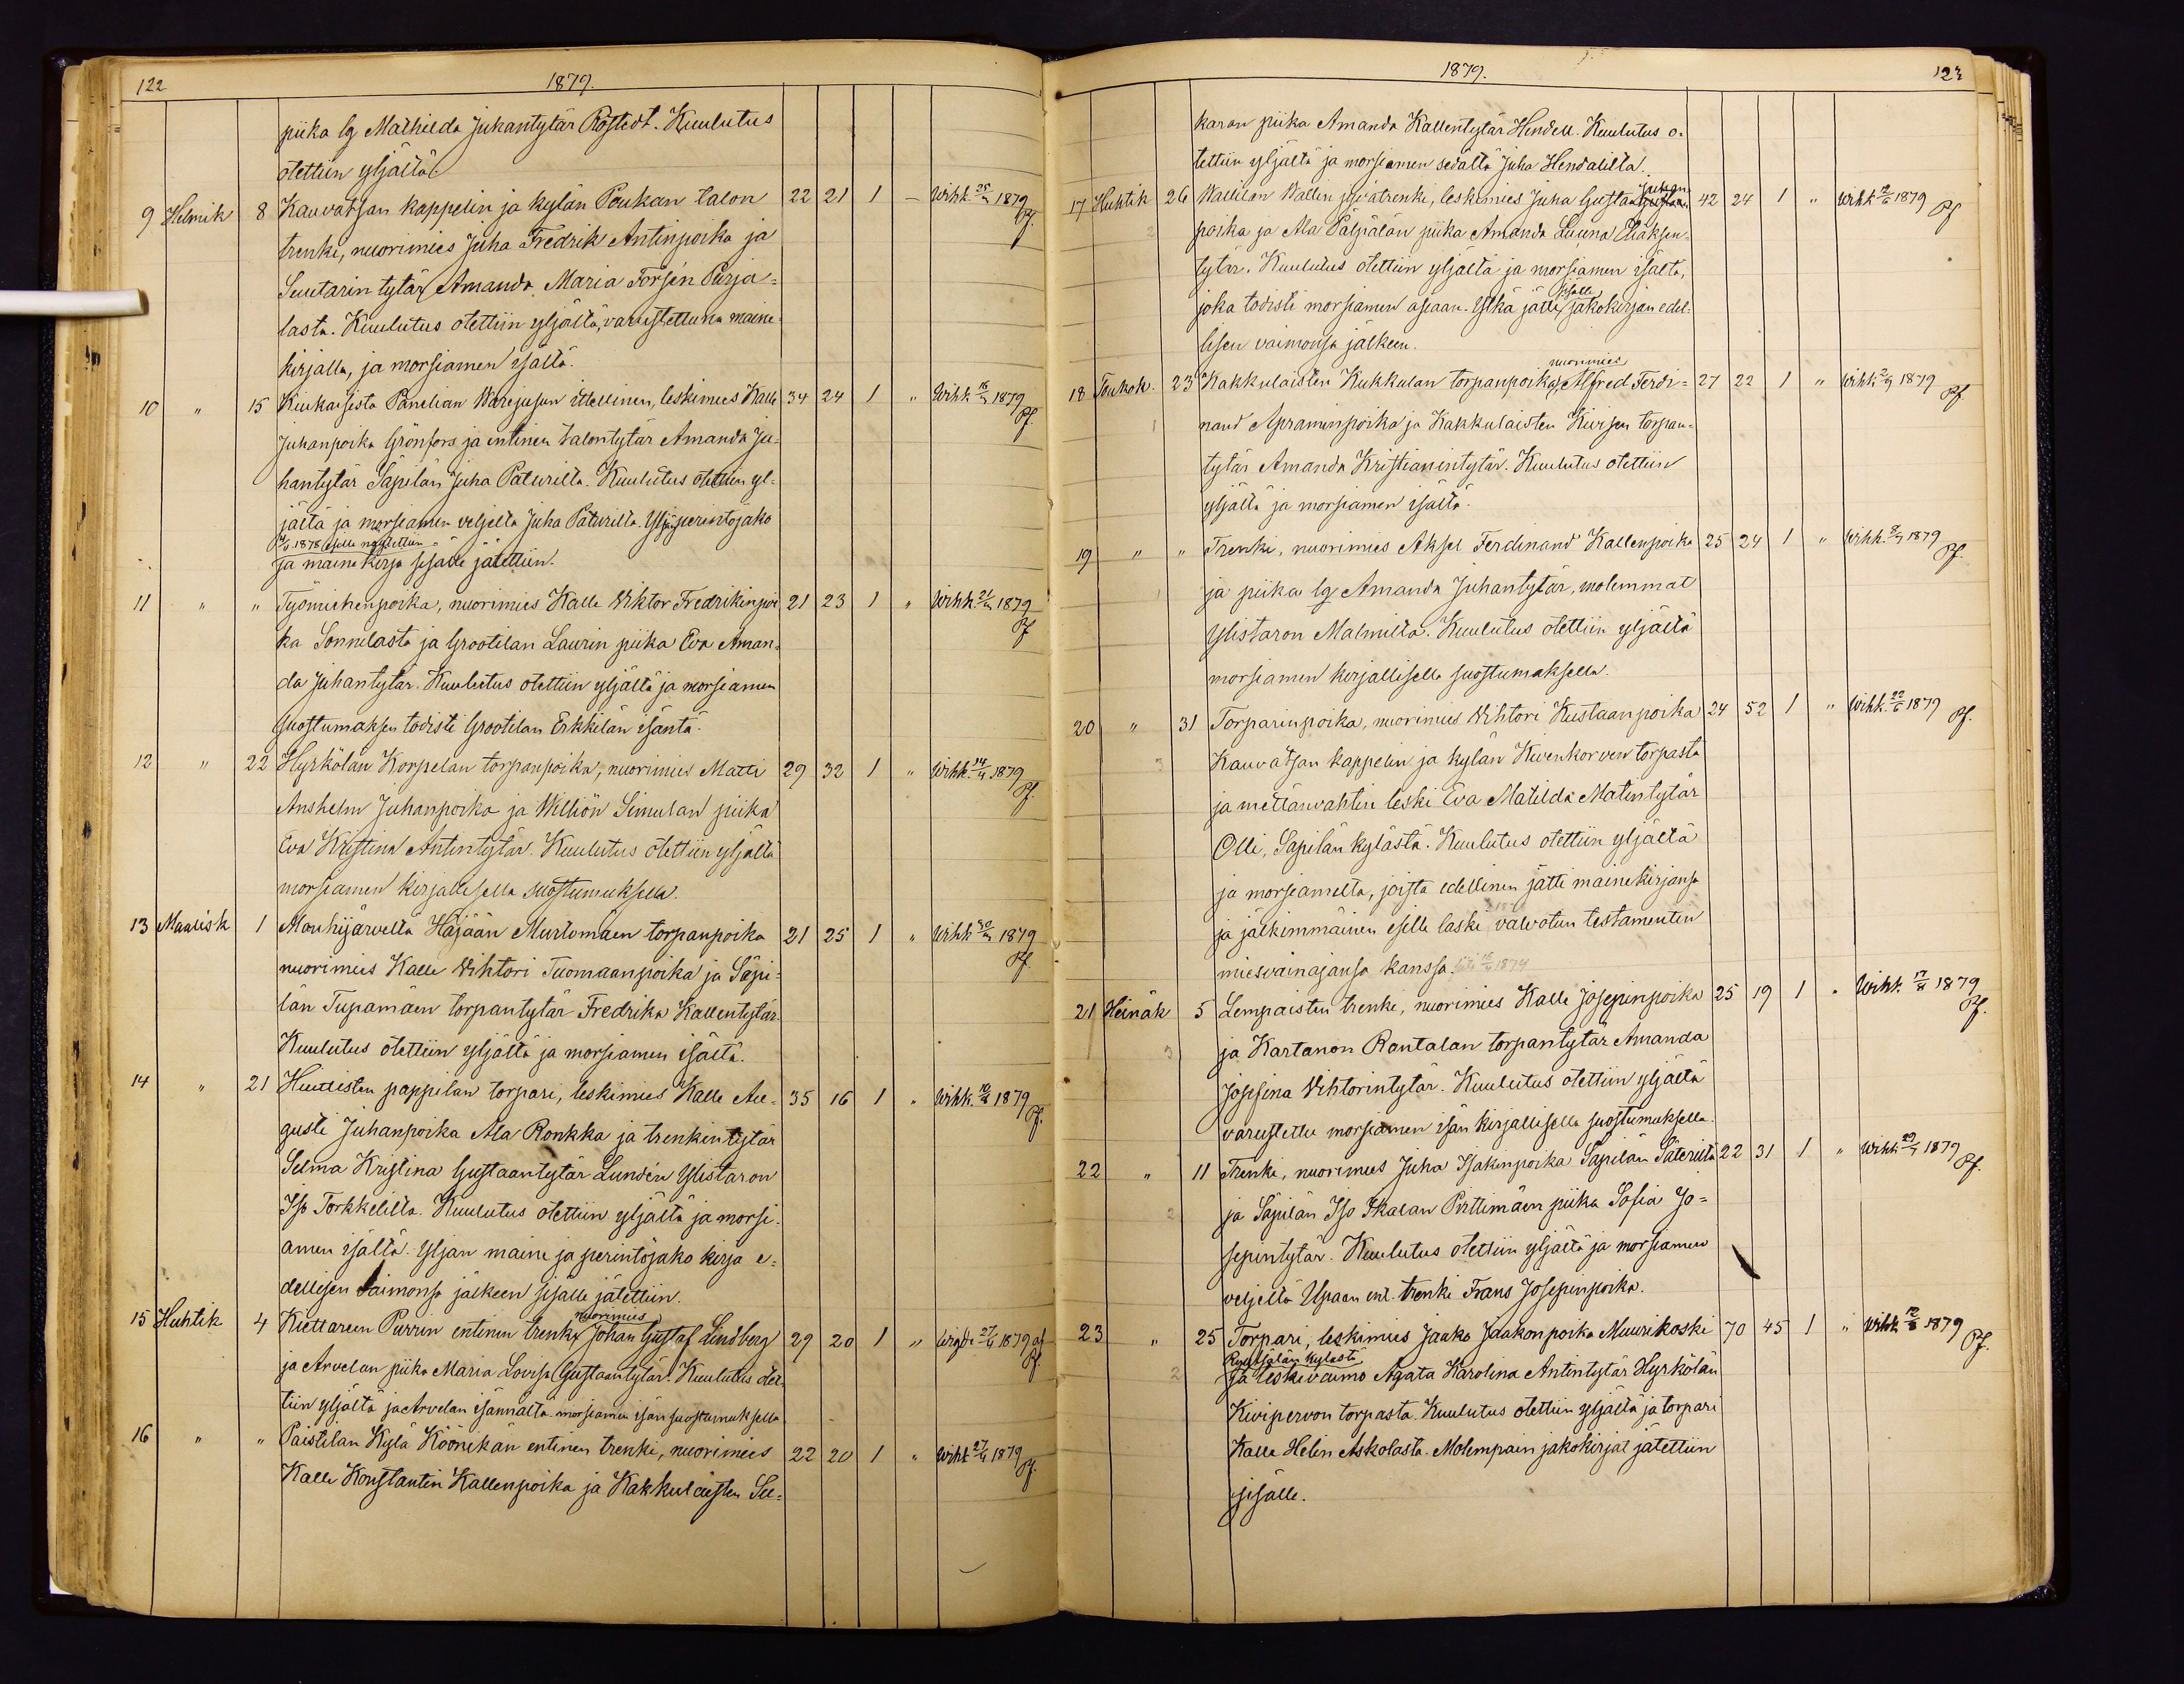 122
1879.
piika lg Mathilda Juhantytär Rostedt. Kuulutus
otettiin yljältä
9 Helmik 8 Kauvatsan kappelin ja kylän Poukan talon 22 21 1 – Wihk. 25/3 1879 Pf.
trenki, nuorimies Juha Fredrik Antinpoika ja
Suutarin tytär Amanda Maria Forsén Purja-
lasta. Kuulutus otettiin yljältä, varustettuna maine-
kirjalla, ja morsiamen isältä.
10 " 15 Kiukaisista Panelian itsellinen, leskimies Kalle 34 24 1 " Wihk. 16/3 1879 Pf.
Juhanpoika Grönfors ja entinen talontytär Amanda Ju-
hantytär Säpilän Juha Paturilta. Kuulutus otettiin yl-
jältä ja morsiamen veljeltä Juha Paturilta. Yljän perintöjako
1878 esille näytettiin
ja maine kirja sisälle jätettiin.
11 " " Työmiehenpoika, nuorimies Kalle Viktor Fredrikinpoi 21 23 1 " Wihk. 21/3 1879 Pf
ka Sonnilasta ja Grootilan Laurin piika Eva Aman-
da Juhantytär. Kuulutus otettiin yljältä ja morsiamen
suostumaksen todisti Grootilan Erkkilän isäntä.
12 " 22 Hyrkölän Korpelan torpanpoika, nuorimies Matti 29 32 1 " Wihk. 14/4 1879 Pf.
Anshelm Juhanpoika ja Williön Simulan piika
Eva Kristina Antintytär. Kuulutus otettiin yljältä
morsiamen kirjallisella suostumuksella.
13 Maalisk 1 Mouhijärveltä Häjään Murtomäen torpanpoika 21 25 1 " Wihk 30/3 1879 Pf.
nuorimies Kalle Vihtori Tuomaanpoika ja Säpi-
län Tupamäen torpantytär Fredrika Kallentytär.
Kuulutus otettiin yljältä ja morsiamen isältä.
14 " 21 Huittisten pappilan torpari, leskimies Kalle Au- 35 16 1 " Wihk. 1879 Pf.
gusti Juhanpoika Ala Ronkka ja trenkintytär
Selma Kristina Gustaantytär Lundén Ylistaron
Iso Torkkelilta. Kuulutus otettiin yljältä ja morsi-
amen isältä. Yljän maine ja perintöjako kirja e-
dellisen vaimonsa jälkeen sisälle jätettiin.
nuorimies
15 Huhtik 4 Kiettareen Purrin entinen trenki, Johan Gustaf Lindberg 29 20 1 " 27/4 1879 af Pf.
ja Arvelan piika Maria Lovisa Gustaantytär. Kuulutus otet-
tiin yljältä ja Arvelan isännältä morsiamen isän suostumuksella
16 " " Paistilan Kylä Köönikän entinen trenki, nuorimies 22 20 1 " Wihk. 27/4 1879 Pf.
Kalle Konstantin Kallenpoika ja Kakkulaisten Su-
1879.
123
karan piika Amanda Kallentytär Hendell. Kuulutus o-
tettiin yljältä ja morsiamen sedältä Juha Hendalilta.
Juhan
17 Huhtik 26 Wallilan Wallin trenki, leskimies Juha Gusta 42 24 1 " Wihk 1879 Pf
2 poika ja Ala Palpälän piika Amanda Luuna Isaksen-
tytär. Kuulutus otettiin yljältä ja morsiamen isältä,
sisälle
joka todisti morsiamen asiaan. Ylkä jätti jakokirjan edel-
lisen vaimonsa jälkeen.
nuorimies
18 Toukok. 23 Kakkulaisten Kukkulan torpanpoika, Alfred Ferdi- 27 22 1 " Wihk. 1879 Pf
1 nand Apraminpoika ja Kakkulaisten Kiirsen torpan-
tytär Amanda Kristianintytär. Kuulutus otettiin
yljältä ja morsiamen isältä.
19 " " Trenki, nuorimies Aksel Ferdinand Kallenpoika 25 24 1 " Wihk. 8/7 1879 Pf.
1 ja piika lg Amanda Juhantytär, molemmat
Ylistaron Malmilta. Kuulutus otettiin yljältä
morsiamen kirjallisella suostumaksella.
20 " 31 Torparinpoika, nuorimies Vihtori Kustaanpoika 24 52 1 " Wihk. 22/6 1879 Pf.
3 Kauvatsan kappelin ja kylän Kivenkorven torpasta
ja mettänvahtin leski Eva Matilda Matintytär
Olli, Sapilän kylästä. Kuulutus otettiin yljältä
ja morsiamelta, joista edellinen jätti mainekirjansa
ja jälkimmäinen esille laski valvotun testamentin
miesvainajansa kanssa. 1874
21 Heinäk 5 Lempaisten trenki, nuorimies Kalle Josepinpoika 25 19 1 " Wihk. 17/8 1879 Pf.
3 ja Kartanon Rantalan torpantytär Amanda
Josefina Vihtorintytär. Kuulutus otettiin yljältä
varustettu morsiamen isän kirjallisella suostumuksella.
22 " 11 Trenki, nuorimies Juha Isakinpoika Sapilän Säteriltä 22 31 1 " Wihk. 29/7 1879 Pf.
2 ja Säpilän Iso Ikalan Pirttimäen piika Sofia Jo-
sepintytär. Kuulutus otettiin yljältä ja morsiamen
veljeltä Upaan ent. trenki Frans Josepinpoika.
23 " 25 Torpari, leskimies Jaako Jaakonpoika Muurikoski 70 45 1 " Wihk. 1879 Pf.
kylästä
2 ja leskivaimo Agata Karolina Antintytär Hyrkölän
Kivipervon torpasta. Kuulutus otettiin yljältä ja torpari
Kalle Helin Askolasta. Molempain jakokirjat jätettiin
sisälle.